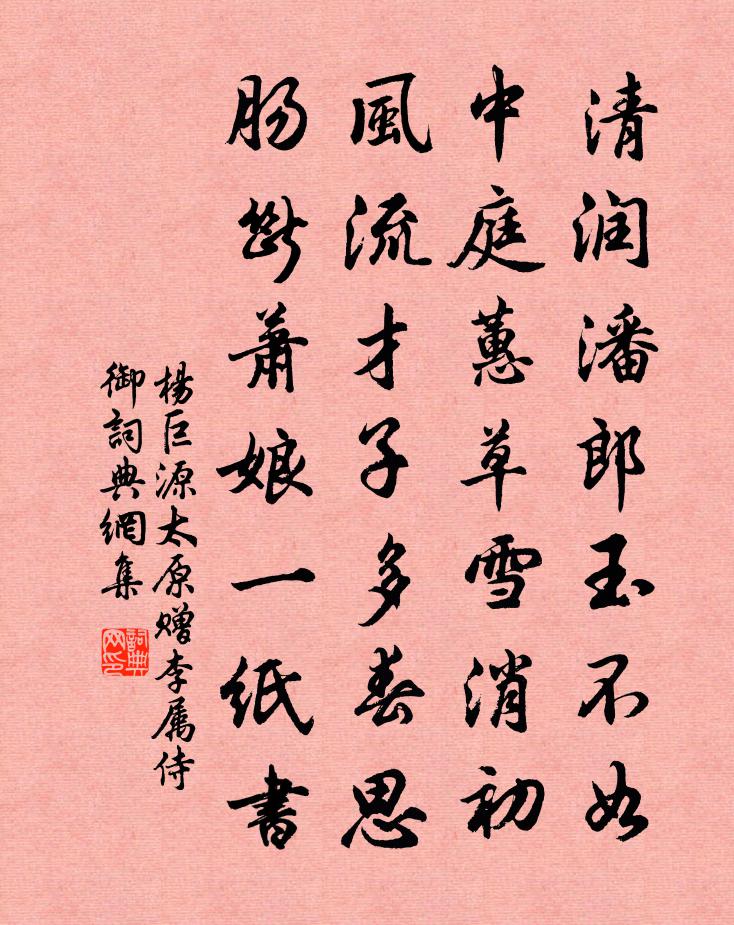 清润潘郎玉不如
中庭蕙草雪消初
風流才子多春思
肠斷萧娘一纸書
楊巨源太原赠李属侍
御詞典網集
詞典网印